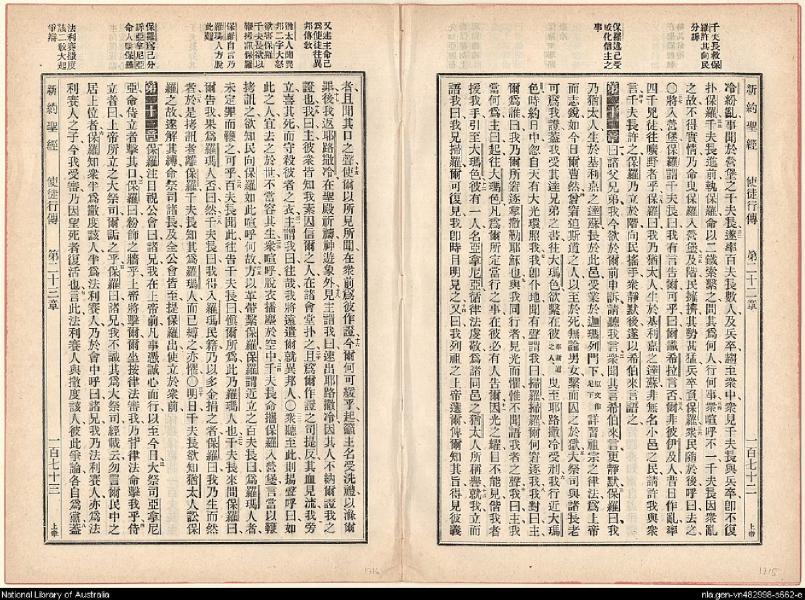 千夫長救保
羅許其向民
分訴
保羅述己受
感化信主之
事
新約聖經　使徒行傳　第二十二章　一百七十二　上帝
冷紛亂事聞於營堡之千夫長遂率百夫長數人及兵卒趨至衆中衆見千夫長與兵卒卽不復
扑保羅千夫長進前執保羅命以二鐵索繫之問其爲何人行何事衆喧呼不一千夫長因衆亂
之故不得實情乃命曳保羅入營堡及階民擁擠其勢甚猛兵卒負保羅衆民隨於後呼曰去之
〇將入營堡保羅謂千夫長曰我有言告爾可乎曰爾識希拉言否爾非彼伊及人昔日作亂率
四千兇徒往曠野者乎保羅曰我乃猶太人生於基利嘉之達蘇非無名小邑之民請許我與衆
言千夫長許之保羅乃立於階向民搖手衆靜默後遂以希伯來言語之
第二十二章曰諸父兄弟我今欲於爾前申訴請聽我言衆聞其言希伯來言更靜默保羅曰我
乃猶太人生於基利嘉之達蘇長於此邑受業於迦瑪列門下許習祖宗之律法爲上帝
而志銳如今日爾曹然曾窘迫斯道之人以至於死無論男女繫而囚之於獄大祭司與諸長老
可爲我證蓋我受其達兄弟之書往大瑪色欲繫在彼曳至耶路撒冷受刑我行近大瑪
色時約日中忽自天有大光環照我我卽仆地聞有聲謂我曰掃羅掃羅何窘逐我我對曰主
爾爲誰曰我乃爾所窘逐拿撒勒耶穌也與我同行者見光而懼惟不聞語我者之聲我曰主我
當何爲主曰起往大瑪色凡爲爾所定當行之事在彼必有人告爾因光之耀目不能見偕我者
援我手引至大瑪色彼有一人名亞拿尼亞循律法度敬爲諸同邑之猶太人所稱譽就我立而
謂我曰兄掃羅爾可復見我卽時目明見之又曰我列祖之上帝選爾俾爾知其旨得見彼義
又述主命己
爲使徒往異
邦傳教
猶太人聞異
邦二字大怒
欲害保羅
千夫長欲以
鞭拷訊保羅
保羅自言乃
羅瑪人方脫
此難
保羅爲己分
訴亞拿尼亞
命人擊保羅
法利賽撒度
該二教大起
爭辯
者且聞其口之聲使爾以所見所聞在衆前爲彼作證今爾何可緩乎起籲主名受洗禮以滌爾
罪後我返耶路撒冷在聖殿祈禱神遊象外見主謂我曰速出耶路撒冷因其人不納爾證我之
證也我曰主彼衆皆知我素囚信爾之人在諸會堂扑之且爲爾作證之司提反其血見流我旁
立喜其死而守殺彼者之衣主謂我曰往哉我將遠遣爾就異邦人〇衆聽至此則揚聲呼曰如
此之人宜去之於世不當容其生衆喧呼脫衣播塵於空中千夫長命攜保羅入營堡言當以鞭
拷訊之欲知民向保羅如此喧呼何故方以革帶繫保羅保羅謂近立之百夫長曰爲羅瑪人者
未定罪而鞭之可乎百夫長聞此往告千夫長曰愼爾所爲此乃羅瑪人也千夫長來問保羅曰
爾吿我果爲羅瑪人否曰然千夫長曰我得入羅瑪民籍乃以多金捐之者保羅曰我乃生而然
者於是將拷訊者離保羅千夫長知其爲羅瑪人而已縛之亦懼〇明日千夫長欲知猶太人訟保
羅之故遂解其縛命祭司諸長及全公會皆至提保羅出使立於衆前
第二十三章保羅注目視公會曰諸兄我在上帝前凡事憑誠心而行以至今日大祭司亞拿尼
亞命侍立者擊其口保羅曰粉飾之牆乎上帝將擊爾爾坐按律法審我乃背律法命擊我乎侍
立者曰上帝所立之大祭司爾詬之乎保羅曰諸兄我不識其爲大祭司經載云勿詈爾民中之
居上位者保羅知衆半爲撒度該人半爲法利賽人乃於會中呼曰諸兄我乃法利賽人亦爲法
利賽人之子今我受審乃因望死者復活也言此法利賽人與撒度該人彼此爭論各自爲黨蓋
新約聖經　使徒行傳　第二十三章　一百七十三　上帝
1716
1715
National Library of Australia
nla.gen-vn482998-s662-e